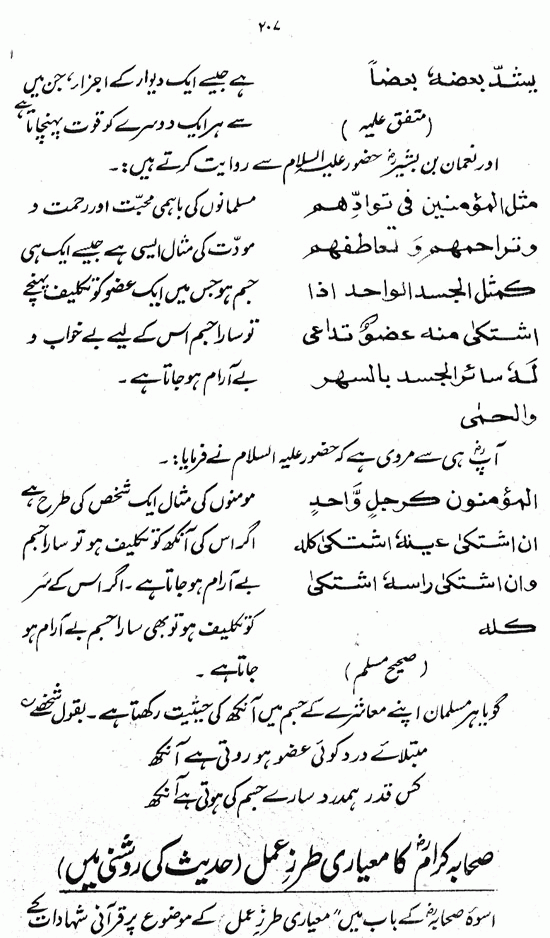 ۲۰۷
یشدّ بعضهٗ بعضاً
(متفق علیہ)
ہے جیسے ایک دیوار کے اجزاء، جن میں
سے ہر ایک دوسرے کو قوت پہنچاتا ہے
اور نعمان بن بشیرؓ حضور علیہ السلام سے روایت کرتے ہیں:۔
مثل المؤمنین فی توادِّھم
وتراحمھم وَ تعاطفھم
کمثل الجسد الواحد اذا
اشتکیٰ منہ عضوٌ تداعی
لَہٗ سائر الجسد بالسھر
والحمٰی
مسلمانوں کی باہمی محبّت اور رحمت و
مودّت کی مثال ایسی ہے جیسے ایک ہی
جسم ہو جس میں ایک عضو کو تکلیف پہنچے
تو سارا جسم اس کے لیے بے خواب و
بے آرام ہو جاتا ہے۔
آپؓ ہی سے مروی ہے کہ حضور علیہ السلام نے فرمایا:۔
المؤمنون کرجلٍ وَّاحدٍ
ان اشتکیٰ عینہٗ اشتکیٰ کلہ
وان اشتکیٰ راسہٗ اشتکیٰ
کلہ
(صحیح مسلم)
مومنوں کی مثال ایک شخص کی طرح ہے
اگر اس کی آنکھ کو تکلیف ہو تو سارا جسم
بے آرام ہو جاتا ہے۔ اگر اس کے سَر
کو تکلیف ہو تو بھی سارا جسم بے آرام ہو
جاتا ہے۔
گویا ہر مسلمان اپنے معاشرے کے جسم میں آنکھ کی حیثیت رکھتا ہے۔ بقول شخصے
مبتلائے درد کوئی عضو ہو روتی ہے آنکھ
کس قدر ہمدرد سارے جسم کی ہوتی ہے آنکھ
صحابہ کرامؓ کا معیاری طرزِ عمل (حدیث کی روشنی میں)
اسوۂ صحابہؓ کے باب میں "معیاری طرزِ عمل" کے موضوع پر قرآنی شہادات کے